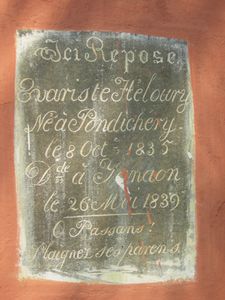 Ici Repose
Evariste Heloury
Né à Pondichéry
le 8 Octbre 1835
Ddé à Yanaon
le 26 Mai 1839
O Passans!
Plaignez ses parens.